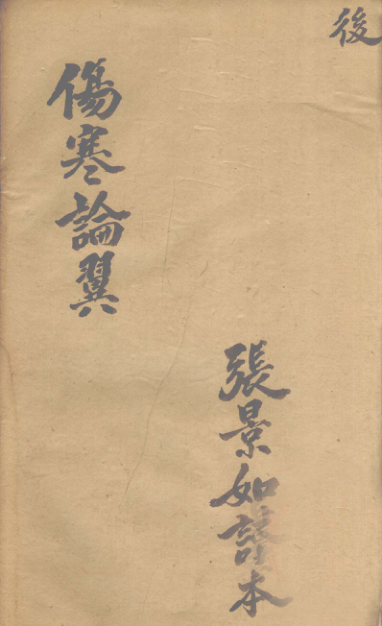 後
傷寒論翼
張景如讀本